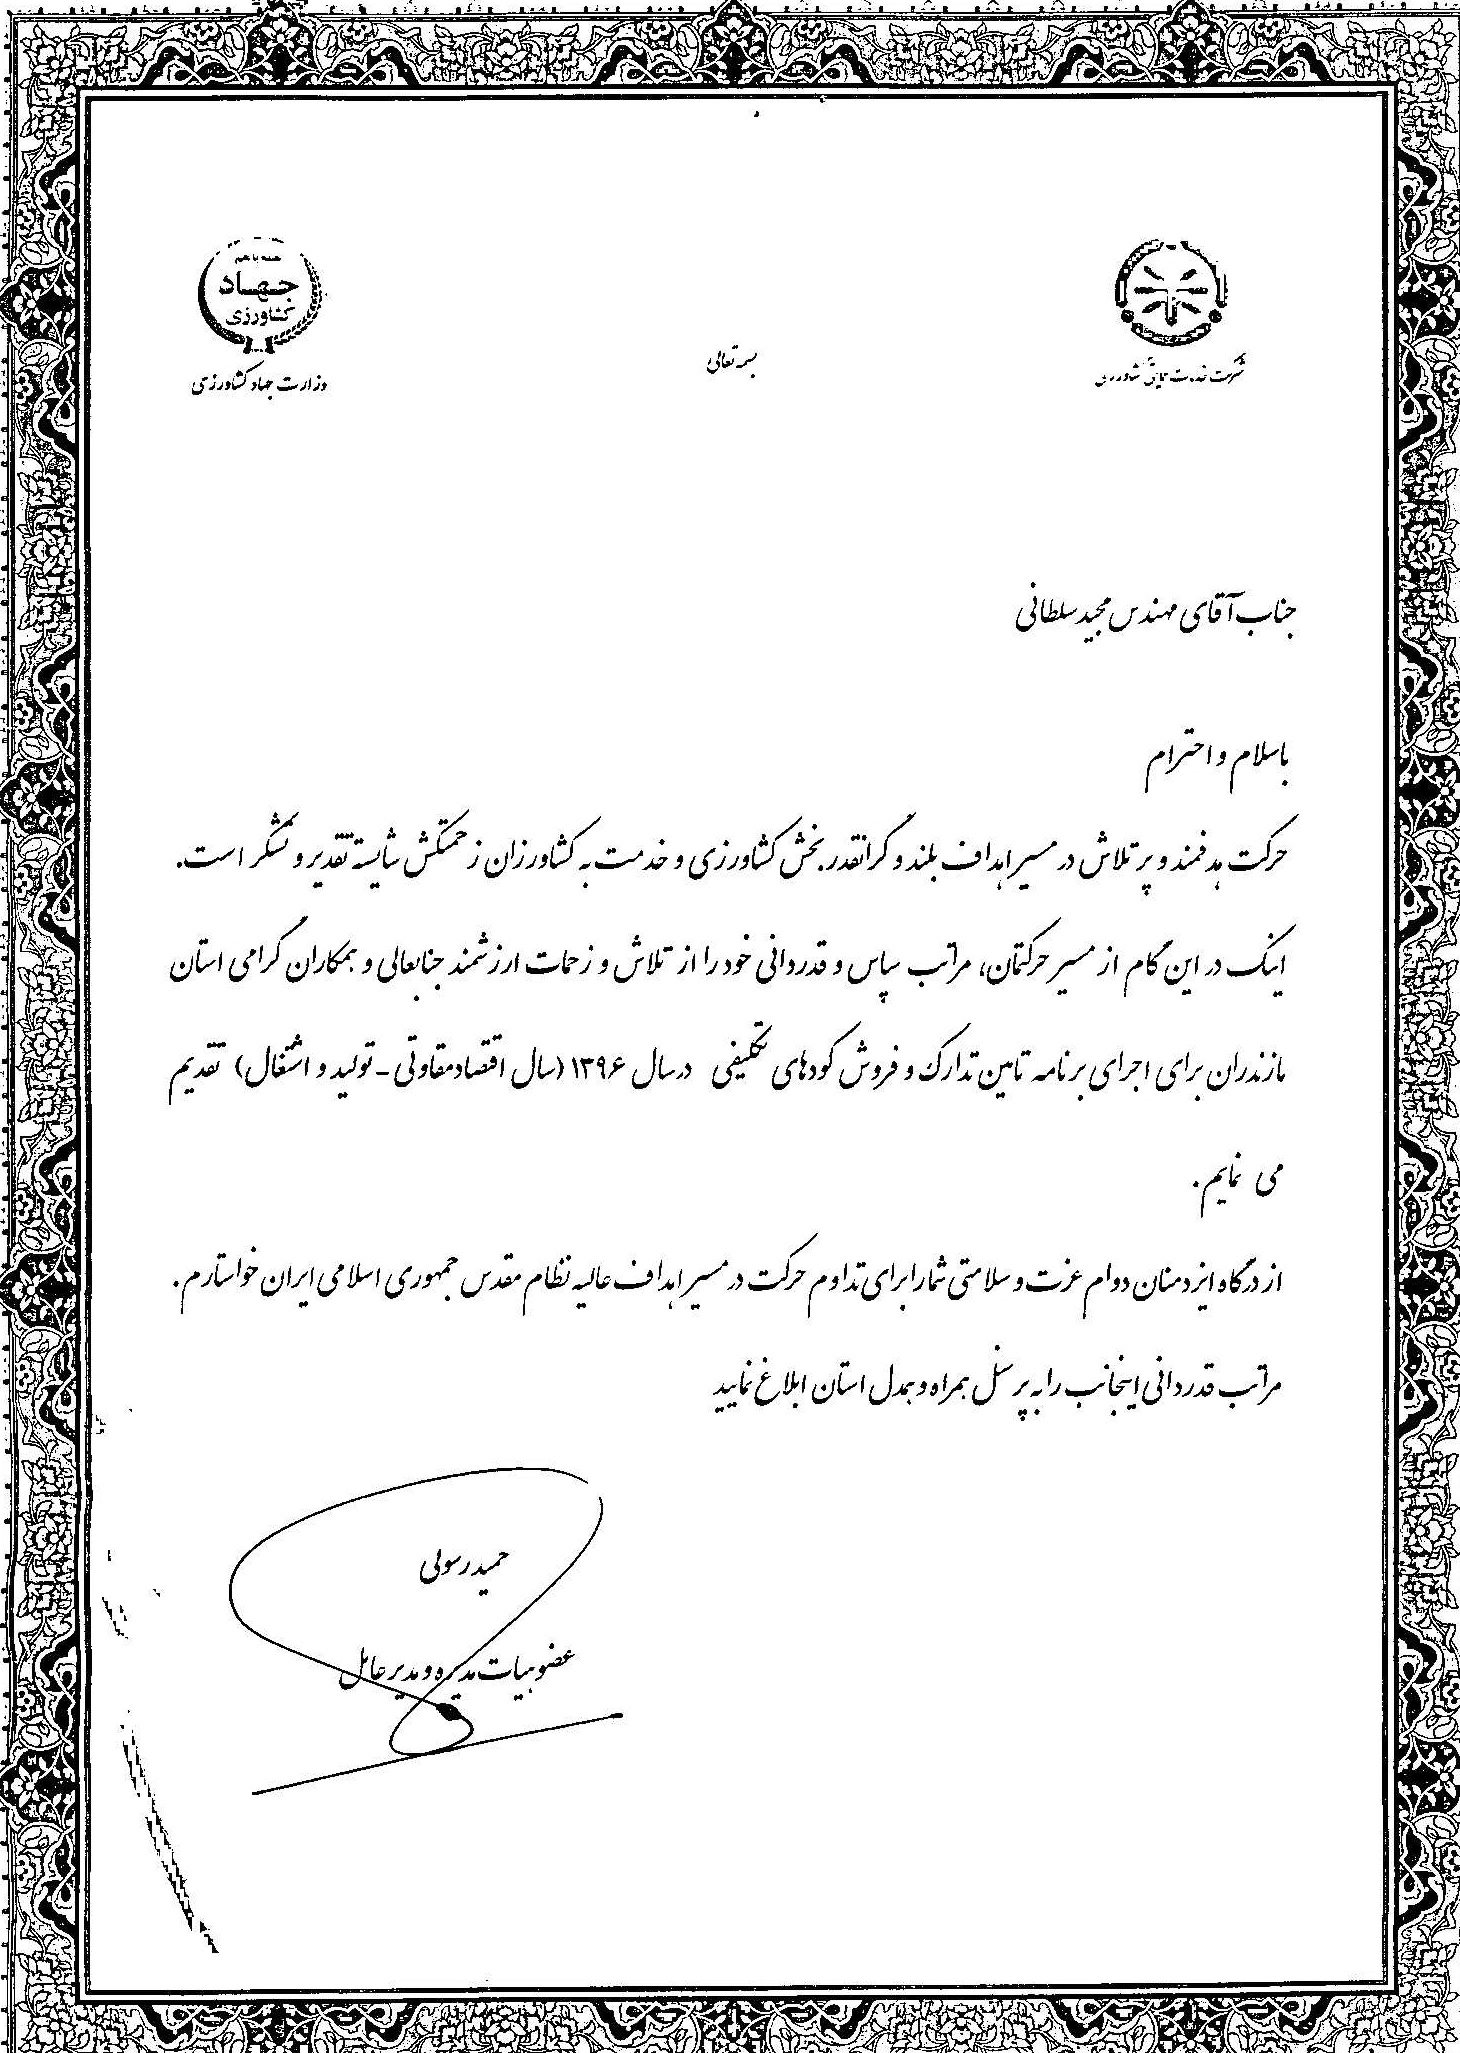 بسمه تعالی
شرکت خدمات حمایتی کشاورزی
جهاد
کشاورزی
وزارت جهاد کشاورزی
جناب آقای مهندس مجید سلطانی
باسلام و احترام
حرکت هدفمند و پر تلاش در مسیر اهداف بلند و گرانقدر بخش کشاورزی و خدمت به کشاورزان زحمتکش شایسته تقدیر و تشکر است.
اینک در این گام از مسیر حرکتمان، مراتب سپاس و قدردانی خود را از تلاش و زحمات ارزشمند جنابعالی و همکاران گرامی استان
مازندران برای اجرای برنامه تامین تدارک و فروش کودهای تکلیفی درسال ۱۳۹۶ (سال اقتصاد مقاوتی - تولید و اشتغال) تقدیم
می نمایم.
از درگاه ایزدمنان دوام عزت و سلامتی شما را برای تداوم حرکت در مسیر اهداف عالیه نظام مقدس جمهوری اسلامی ایران خواستارم.
مراتب قدردانی اینجانب را به پرسنل همراه و همدل استان ابلاغ نمایید
حمید رسولی
عضو هیات مدیره و مدیر عامل